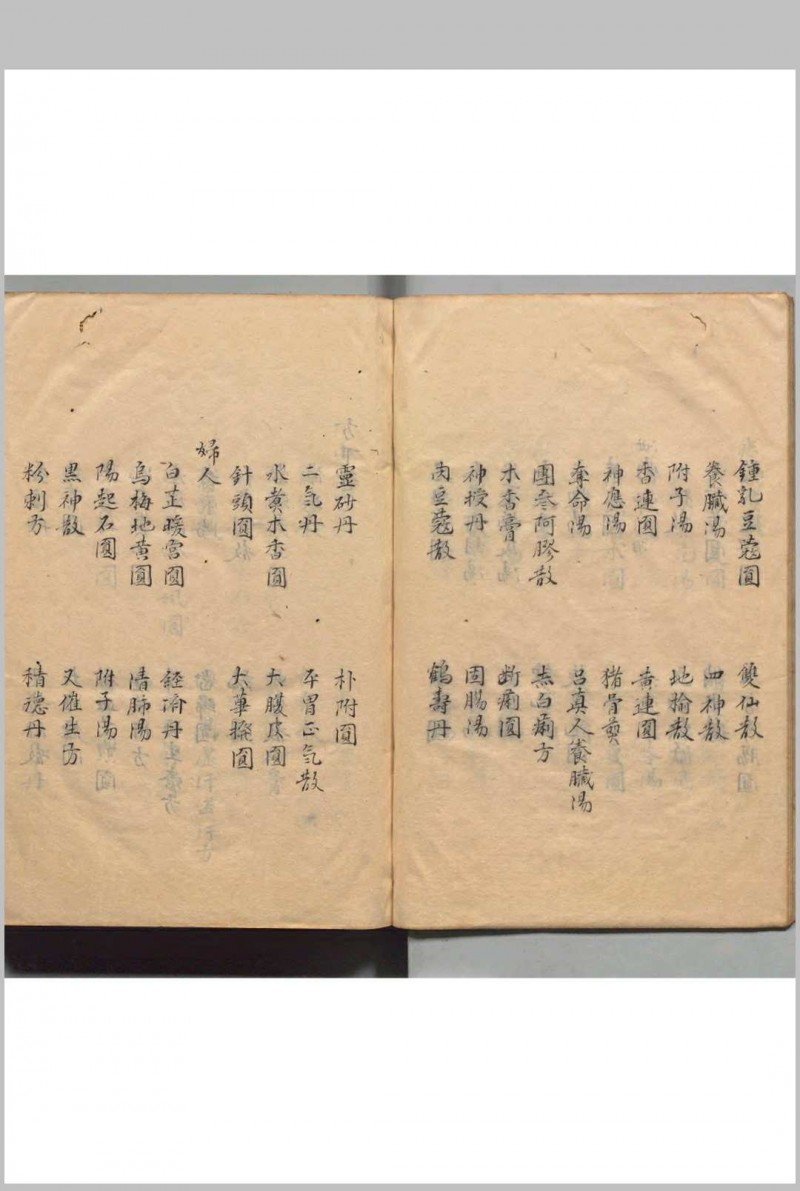 鍾乳豆蔻圓 雙仙散
養臟湯 四神散
附子湯 地榆散
香連圓 黃連圓
神應湯 猪骨煎
奪命湯 呂真人養臟湯
團参阿膠散 赤白痢方
木香膏 断痢圓
神授丹 固腸湯
肉豆蔻散 鶴壽丹
靈砂丹 朴附圓
二氣丹 平胃正气散
水煮木香圓 大腹皮圓
針頭圓 大蓽撥圓
婦人
白芷暖宮圓 経済丹
烏梅地黄圓 清肺湯
陽起石圓 附子湯
黒神散 又催生方
粉刺方 積德丹